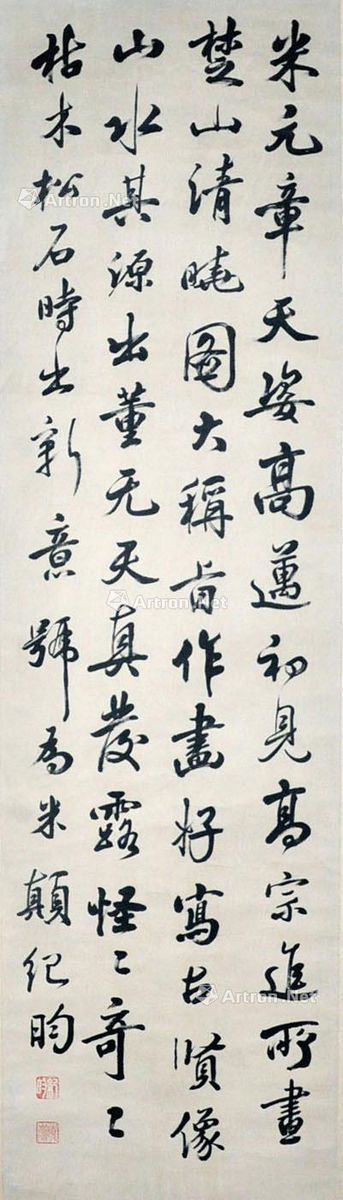 米元章天姿高邁初見高宗進所畫
楚山清曉圖大稱旨作畫好寫古賢像
山水其源出董无天真發露怪〻奇〻
枯木松石時出新意號為米顛紀昀
Artron.Net
Artron.Net
Artron.Net
Artron.Net
Artron.Net